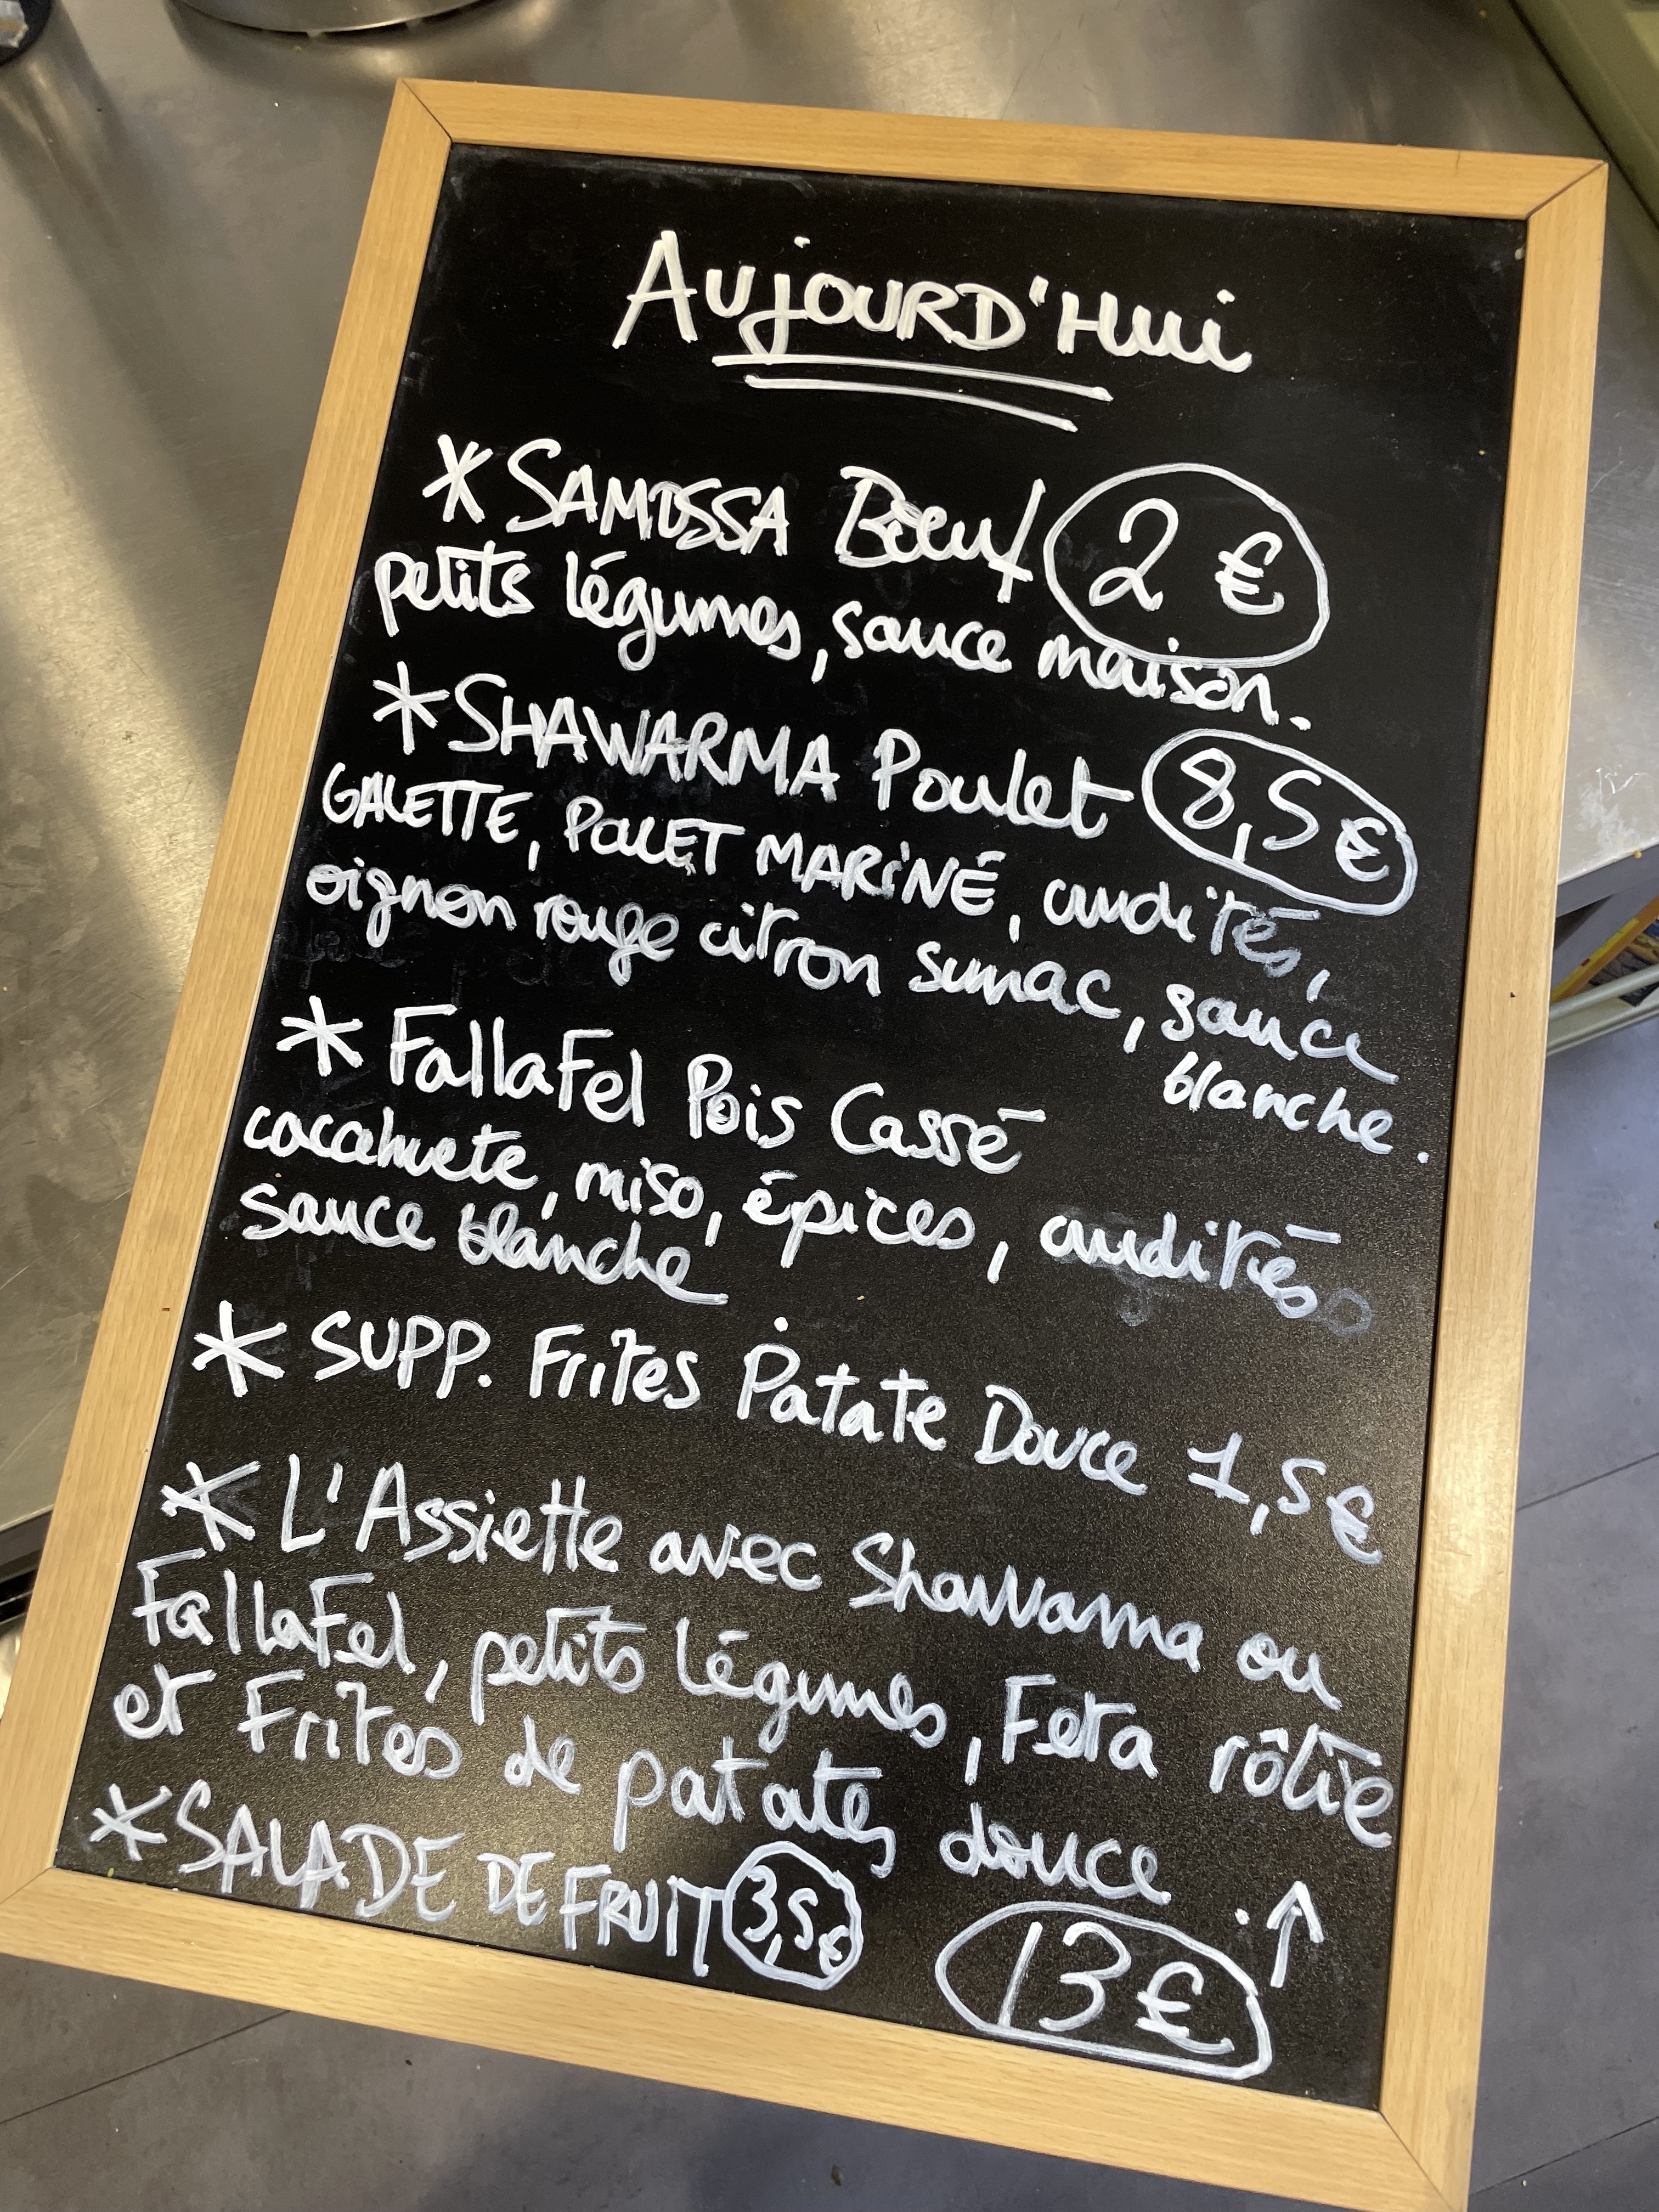 AUJOURD'HUI
* SAMOSSA Boeuf 2 €
petits légumes, sauce maison.
* SHAWARMA Poulet 8,5 €
GALETTE, POULET MARINÉ, crudités,
oignon rouge citron sumac, sauce
blanche.
* FallaFel Pois Cassé
cacahuete, miso, épices, crudités
sauce blanche
* SUPP. Frites Patate Douce 1,5 €
* L'Assiette avec Shawarma ou
FallaFel, petits légumes, Feta rôtie
et Frites de patates douce.
* SALADE DE FRUIT 3,5 €
13 €